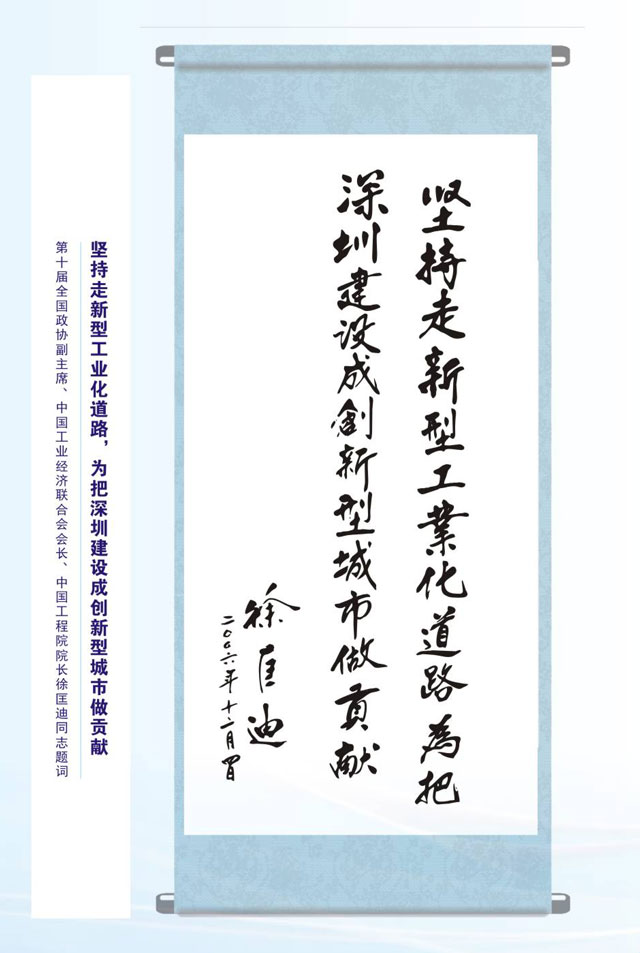 坚持走新型工業化道路為把
深圳建设成創新型城市做贡献
徐匡迪
二〇〇六年十二月四日
坚持走新型工业化道路，为把深圳建设成创新型城市做贡献
第十届全国政协副主席、中国工业经济联合会会长、中国工程院院长徐匡迪同志题词